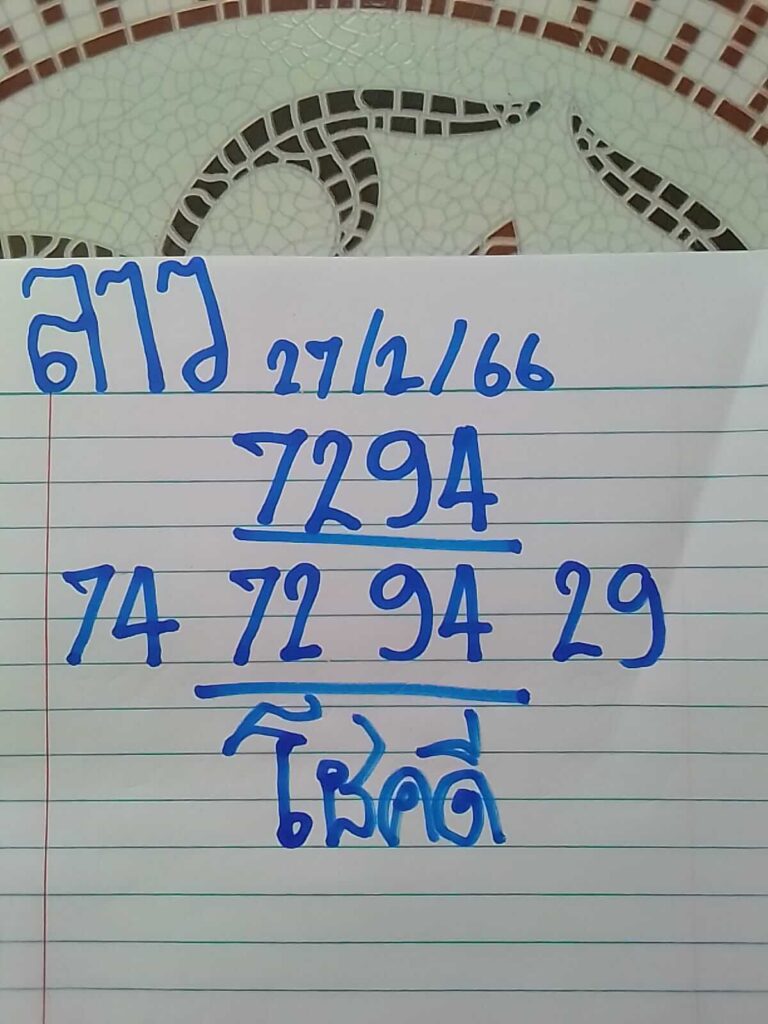 ลาว 27/2/66
7294
74 72 94 29
โชคดี